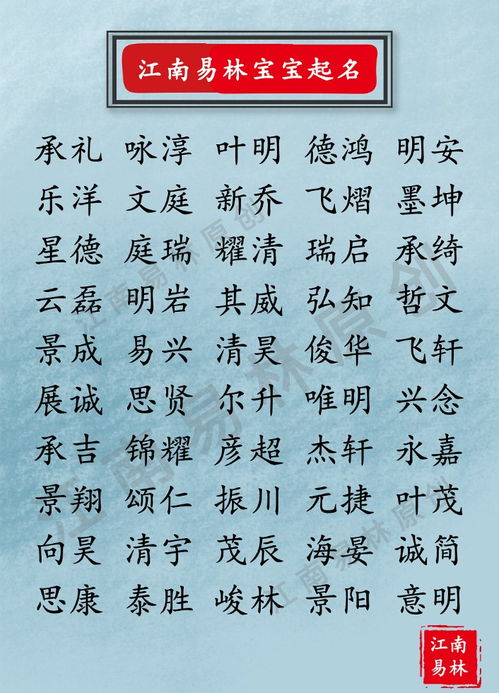 江南易林宝宝起名
承礼 咏淳 叶明 德鸿 明安
乐洋 文庭 新乔 飞熠 墨坤
星德 庭瑞 耀清 瑞启 承绮
云磊 明岩 其威 弘知 哲文
景成 易兴 清昊 俊华 飞轩
展诚 思贤 尔升 唯明 兴念
承吉 锦耀 彦超 杰轩 永嘉
景翔 颂仁 振川 元捷 叶茂
向昊 清宇 茂辰 海晏 诚简
思康 泰胜 峻林 景阳 意明
江南易林原创
江南易林原创
江南易林原创
江南
易林